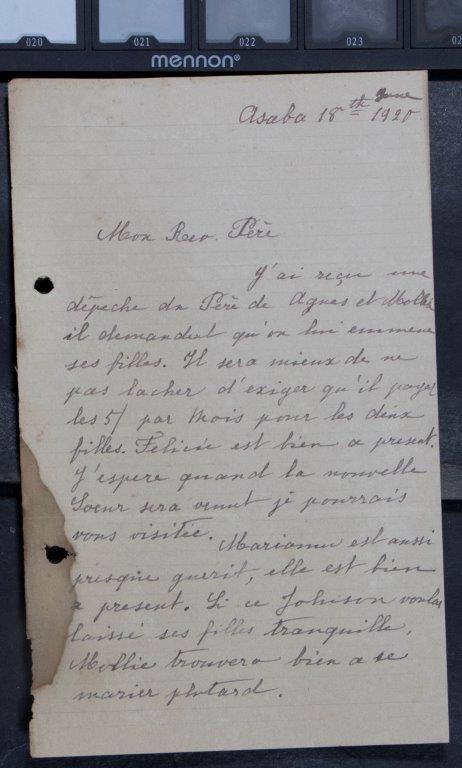 020 021 022 023
mennon®
Asaba 18th June 1920
Mon Rev. Père
J'ai reçu une
dépeche du Père de Agnes et Mollie
il demandat qu'on lui emmene
ses filles. Il sera mieux de ne
pas lacher d'exiger qu'il paye
les 5/ par Mois pour les deux
filles. Felicie est bien a present.
J'espere quand la nouvelle
Soeur sera venut je pourrais
vous visitée.
Mariamu est aussi
presque guerit, elle est bien
a present. Si ce Johnson voulai
laissé ses filles tranquille,
Mollie trouvera bien a se
marier plutard.